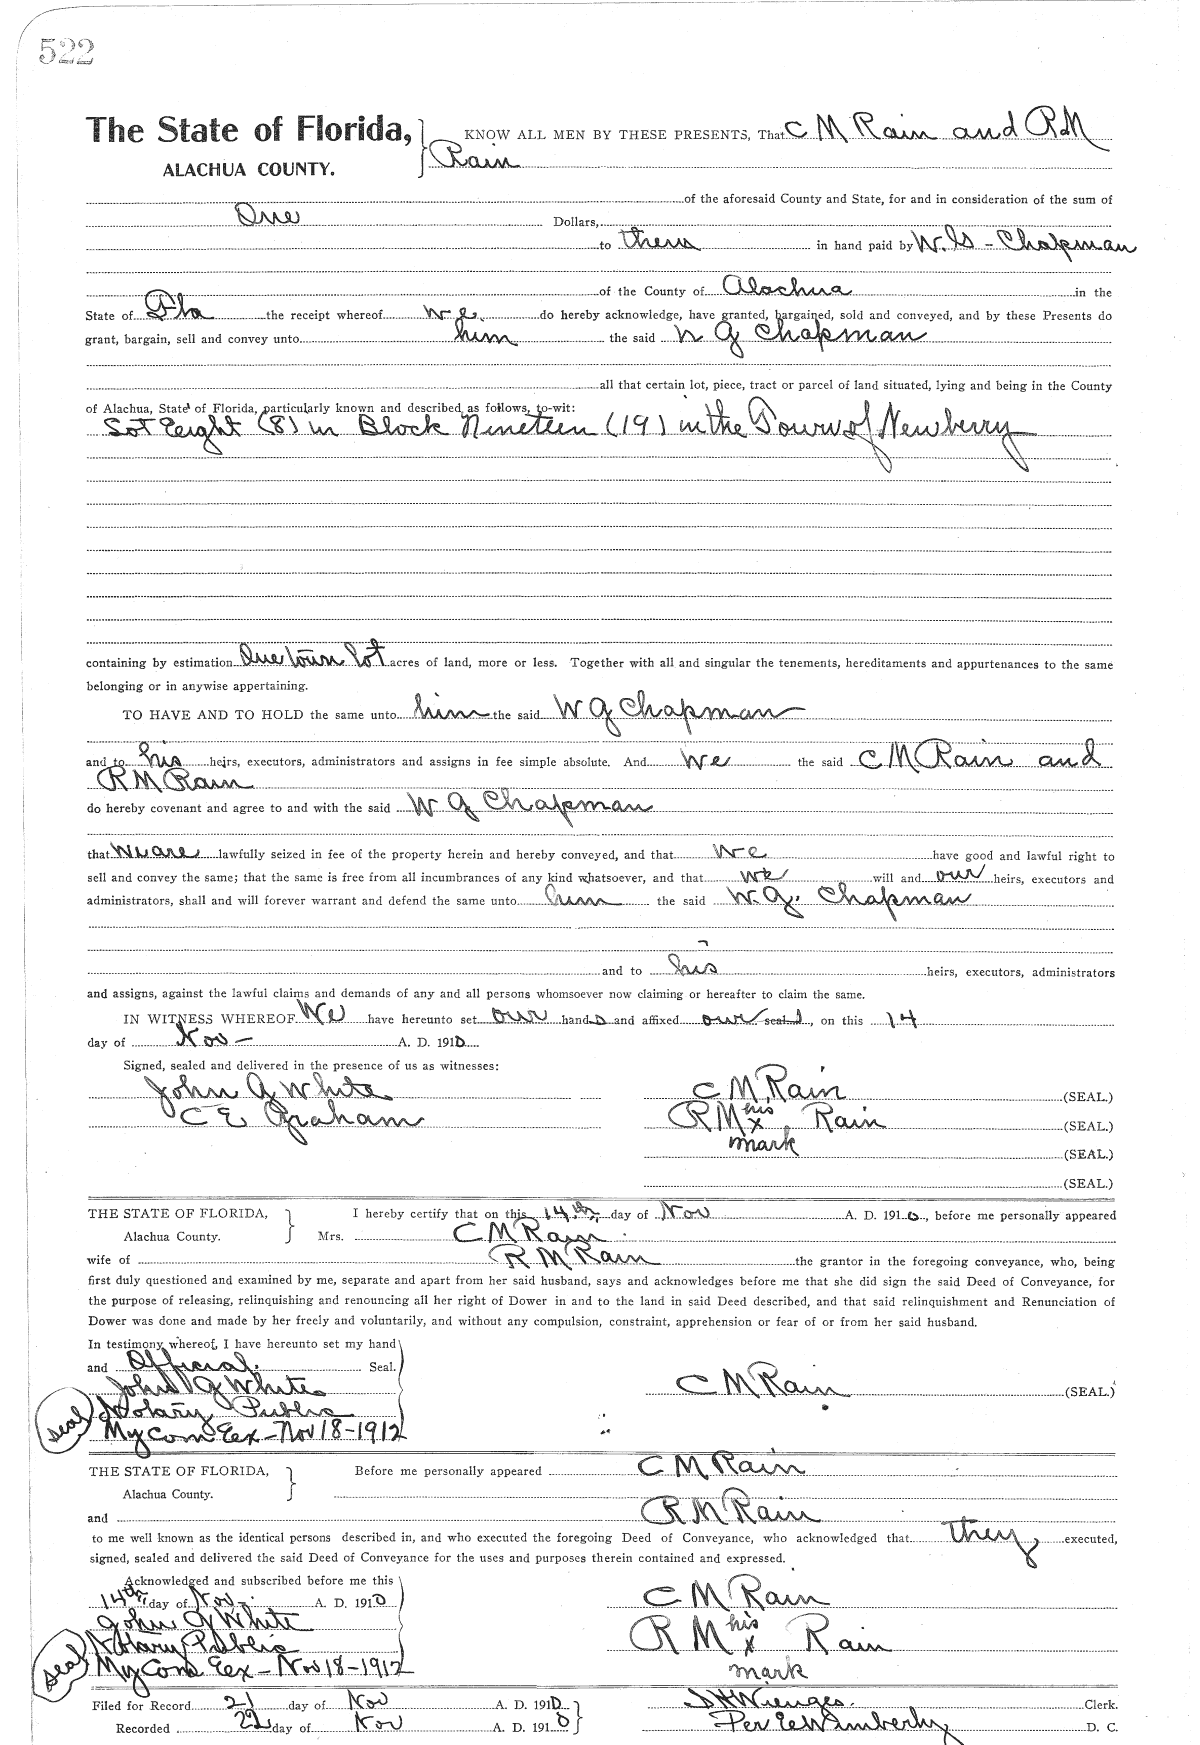 522
The State of Florida, KNOW ALL MEN BY THESE PRESENTS, That C M Rain and R M
ALACHUA COUNTY. Rain
of the aforesaid County and State, for and in consideration of the sum of
One Dollars,
to them in hand paid by W. G - Chapman
of the County of Alachua in the
State of Fla the receipt whereof we do hereby acknowledge, have granted, bargained, sold and conveyed, and by these Presents do
grant, bargain, sell and convey unto him the said W G Chapman
all that certain lot, piece, tract or parcel of land situated, lying and being in the County
of Alachua, State of Florida, particularly known and described as follows, to-wit:
Lot Eeight (8) in Block Nineteen (19) in the Town of Newberry
containing by estimation One town lot acres of land, more or less. Together with all and singular the tenements, hereditaments and appurtenances to the same
belonging or in anywise appertaining.
TO HAVE AND TO HOLD the same unto him the said W G Chapman
and to his heirs, executors, administrators and assigns in fee simple absolute. And we the said C M Rain and
R M Rain
do hereby covenant and agree to and with the said W G Chapman
that we are lawfully seized in fee of the property herein and hereby conveyed, and that we have good and lawful right to
sell and convey the same; that the same is free from all incumbrances of any kind whatsoever, and that we will and our heirs, executors and
administrators, shall and will forever warrant and defend the same unto him the said W. G. Chapman
and to his heirs, executors, administrators
and assigns, against the lawful claims and demands of any and all persons whomsoever now claiming or hereafter to claim the same.
IN WITNESS WHEREOF We have hereunto set our hands and affixed our seals, on this 14
day of Nov - A. D. 1910
Signed, sealed and delivered in the presence of us as witnesses:
John G White C M Rain (SEAL.)
C E Graham R M his x Rain (SEAL.)
mark (SEAL.)
(SEAL.)
THE STATE OF FLORIDA, I hereby certify that on this 14th, day of Nov A. D. 1910, before me personally appeared
Alachua County. Mrs. C M Rain
wife of R M Rain the grantor in the foregoing conveyance, who, being
first duly questioned and examined by me, separate and apart from her said husband, says and acknowledges before me that she did sign the said Deed of Conveyance, for
the purpose of releasing, relinquishing and renouncing all her right of Dower in and to the land in said Deed described, and that said relinquishment and Renunciation of
Dower was done and made by her freely and voluntarily, and without any compulsion, constraint, apprehension or fear of or from her said husband.
In testimony whereof, I have hereunto set my hand
and Official. Seal.
John G White C M Rain (SEAL.)
Notary Public
seal My Com Eex - Nov 18 - 1912
THE STATE OF FLORIDA, Before me personally appeared C M Rain
Alachua County.
and R M Rain
to me well known as the identical persons described in, and who executed the foregoing Deed of Conveyance, who acknowledged that they executed,
signed, sealed and delivered the said Deed of Conveyance for the uses and purposes therein contained and expressed.
Acknowledged and subscribed before me this
14th, day of Nov - A. D. 1910 C M Rain
John G White R M his x Rain
Notary Public mark
seal My Com Eex - Nov 18 - 1912
Filed for Record 21 day of Nov A. D. 1910 S H Wienges. Clerk.
Recorded 22 day of Nov A. D. 1910 Per E W Wimberly D. C.